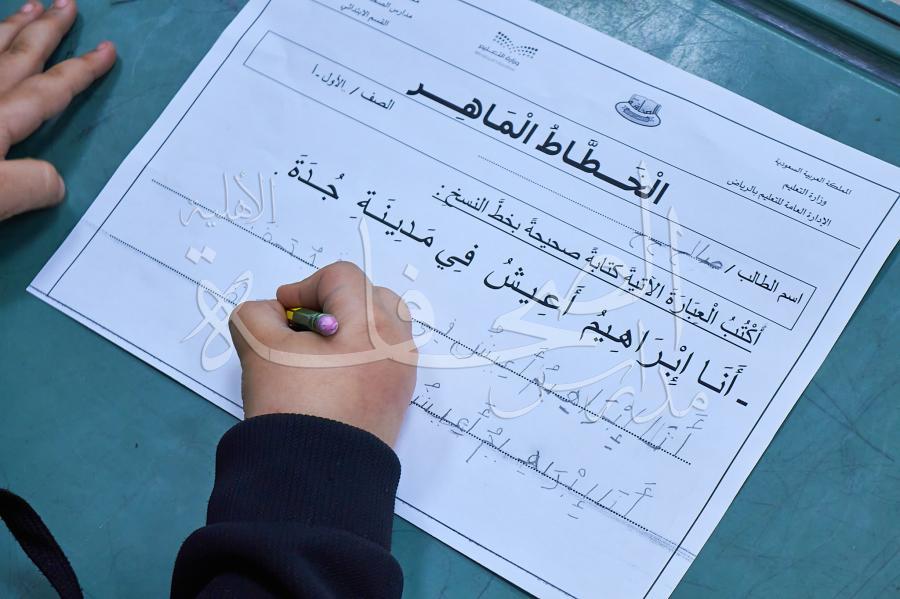 المملكة العربية السعودية
وزارة التعليم
الإدارة العامة للتعليم بالرياض
وزارة التعليم
القسم الابتدائي
الْخَطَّاطُ الْمَاهِر
اسم الطالب /
الصف / الأول -أ
أَكْتُبُ الْعِبَارَةَ الْآتِيَةَ كِتَابَةً صَحِيحَةً بِخَطِّ النَّسْخِ:
- أَنَا إِبْرَاهِيمُ أَعِيشُ فِي مَدِينَةِ جُدَةَ .
أنا إبراهيم أعيش في
أنا إبراهيم أعيش
مدارس الصحافة الأهلية